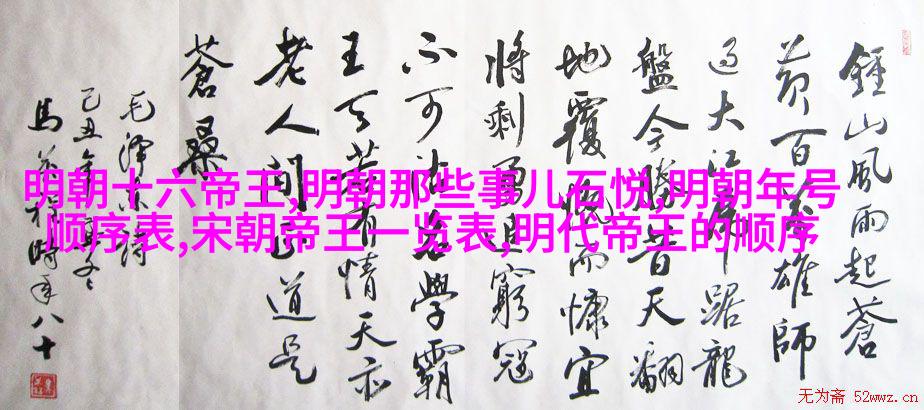 明朝十六帝王,明朝那些事儿石悦,明朝年号
顺序表,宋朝帝王一览表,明代帝王的顺序
鍾山風雨起蒼
黄百萬雄師
過大江虎踞龍
盤今勝昔天翻
地覆慨而慷宜
將剩勇追窮寇
不可沽名學霸
王天若有情天亦
老人間正道是
蒼桑
毛澤东詩
己丑年冬
馬 時年八十
无为斋 52wwz.cn